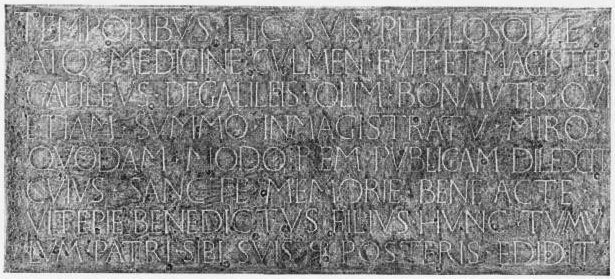 TEMPORIBVS · HIC · SVIS · PHILOSOPHIE
ATQ · MEDICINE · CVLMEN · FVIT · ET · MAGISTER
GALILEVS · DEGALILEIS · OLIM · BONAIVTIS · QVI
ETIAM · SVMMO · INMAGISTRATV · MIRO
QVODAM · MODO · REM · PVBLICAM · DILEXIT
CVIVS · SANCTE · MEMORIE · BENE · ACTE
VITE PIE · BENEDICTVS · FILIVS · HVNC · TVMV
LVM · PATRI · SIBI · SVIS · Q · POSTERIS · EDIDIT